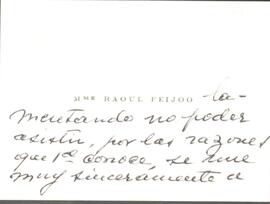 MME RAOUL FEIJOO la-
mentando no poder
asistir, por las razones
que Vd. conoce, se une
muy sinceramente a